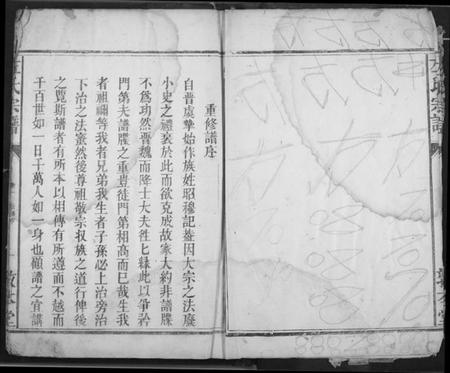 重修譜序
自晉虞摯始作族姓昭穆記蓋因大宗之法廢
小史之禮衰於此而欲克成故家大約非譜牒
不為功然晉魏而降士大夫往往緣此以爭矜
門第夫譜牒之重豈徒門第相高而已哉生我
者祖禰等我者兄弟我生者子孫必上治旁治
下治之法蓋然後尊祖敬宗收族之道行俾後
之覽斯譜者有所本以相傳有所遵而不越而
千百世如一日千萬人如一身也顧譜之宜講
氏宗譜
敦本堂
氏宗譜